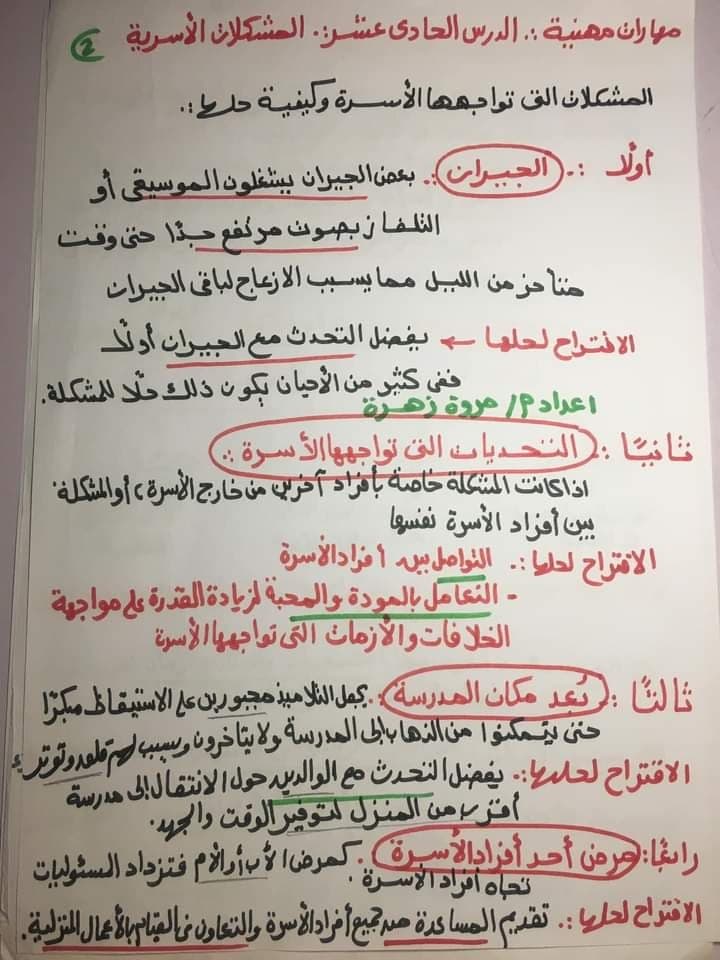 مهارات مهنية :. الدرس الحادى عشر :. المشكلات الأسرية 2
المشكلات التى تواجهها الأسرة وكيفية حلها :.
أولًا :. الجيران :. بعض الجيران يشغلون الموسيقى أو
التلفاز بصوت مرتفع جدًا حتى وقت
متأخر من الليل مما يسبب الازعاج لباقى الجيران
الاقتراح لحلها ← يفضل التحدث مع الجيران أولًا
ففى كثير من الأحيان يكون ذلك حلًا للمشكلة.
اعداد م/ مروة زهرة
ثانيًا :. التحديات التى تواجهها الأسرة :.
اذا كانت المشكلة خاصة بأفراد آخرين من خارج الأسرة، أو المشكلة
بين أفراد الأسرة نفسها
الاقتراح لحلها :. التواصل بين أفراد الأسرة
- التعامل بالمودة والمحبة لزيادة القدرة على مواجهة
الخلافات والأزمات التى تواجهها الأسرة
ثالثًا :. بُعد مكان المدرسة :. يجعل التلاميذ مجبورين على الاستيقاظ مبكرًا
حتى يتمكنوا من الذهاب إلى المدرسة ولا يتأخرون ويسبب لهم قلق وتوتر
الاقتراح لحلها :. يفضل التحدث مع الوالدين حول الانتقال إلى مدرسة
أقرب من المنزل لتوفير الوقت والجهد.
رابعًا: مرض أحد أفراد الأسرة :. كمرض الأب أو الأم فتزداد المسئوليات
تجاه أفراد الأسرة.
الاقتراح لحلها :. تقديم المساعدة من جميع أفراد الأسرة والتعاون فى القيام بالأعمال المنزلية.